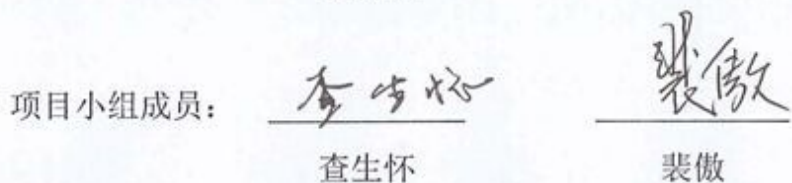 项目小组成员： 查生怀 裴傲
查生怀 裴傲